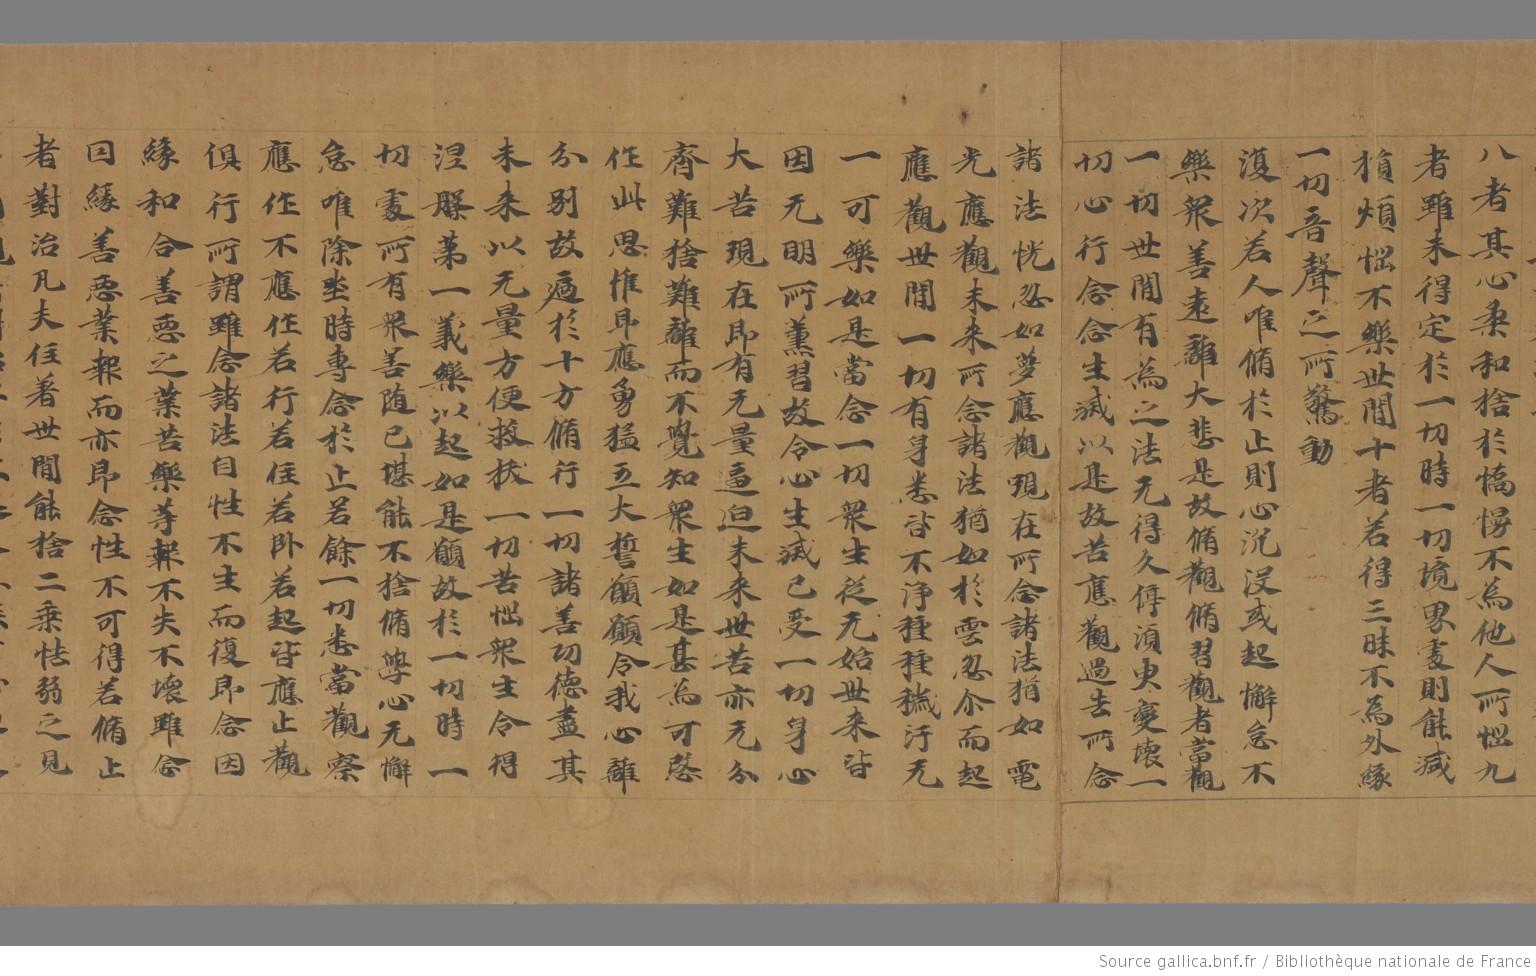 八者其心柔和捨於憍慢不為他人所惱九
者雖未得定於一切時一切境界處則能減
損煩惱不樂世間十者若得三昧不為外緣
一切音聲之所驚動
復次若人唯脩於止則心沉沒或起懈怠不
樂衆善遠離大悲是故脩觀脩習觀者當觀
一切世間有為之法无得久停湏臾變壞一
切心行念念生滅以是故苦應觀過去所念
諸法恍忽如夢應觀現在所念諸法猶如電
光應觀未來所念諸法猶如於雲忽尒而起
應觀世間一切有身悉皆不淨種種穢汙无
一可樂如是當念一切衆生從无始世來皆
因无明所薰習故令心生滅已受一切身心
大苦現在即有无量逼迫未來世苦亦无分
齊難捨難離而不覺知衆生如是甚為可愍
作此思惟即應勇猛立大誓願願令我心離
分別故遍於十方脩行一切諸善功德盡其
未來以无量方便救拔一切苦惱衆生令得
涅槃第一義樂以起如是願故於一切時一
切處所有衆善随已堪能不捨脩學心无懈
怠唯除坐時專念於止若餘一切悉當觀察
應作不應作若行若住若卧若起皆應止觀
俱行所謂雖念諸法自性不生而復即念因
緣和合善惡之業苦樂等報不失不壞雖念
因緣善惡業報而亦即念性不可得若脩止
者對治凡夫住著世間能捨二乘怯弱之見
Source gallica.bnf.fr / Bibliothèque nationale de France